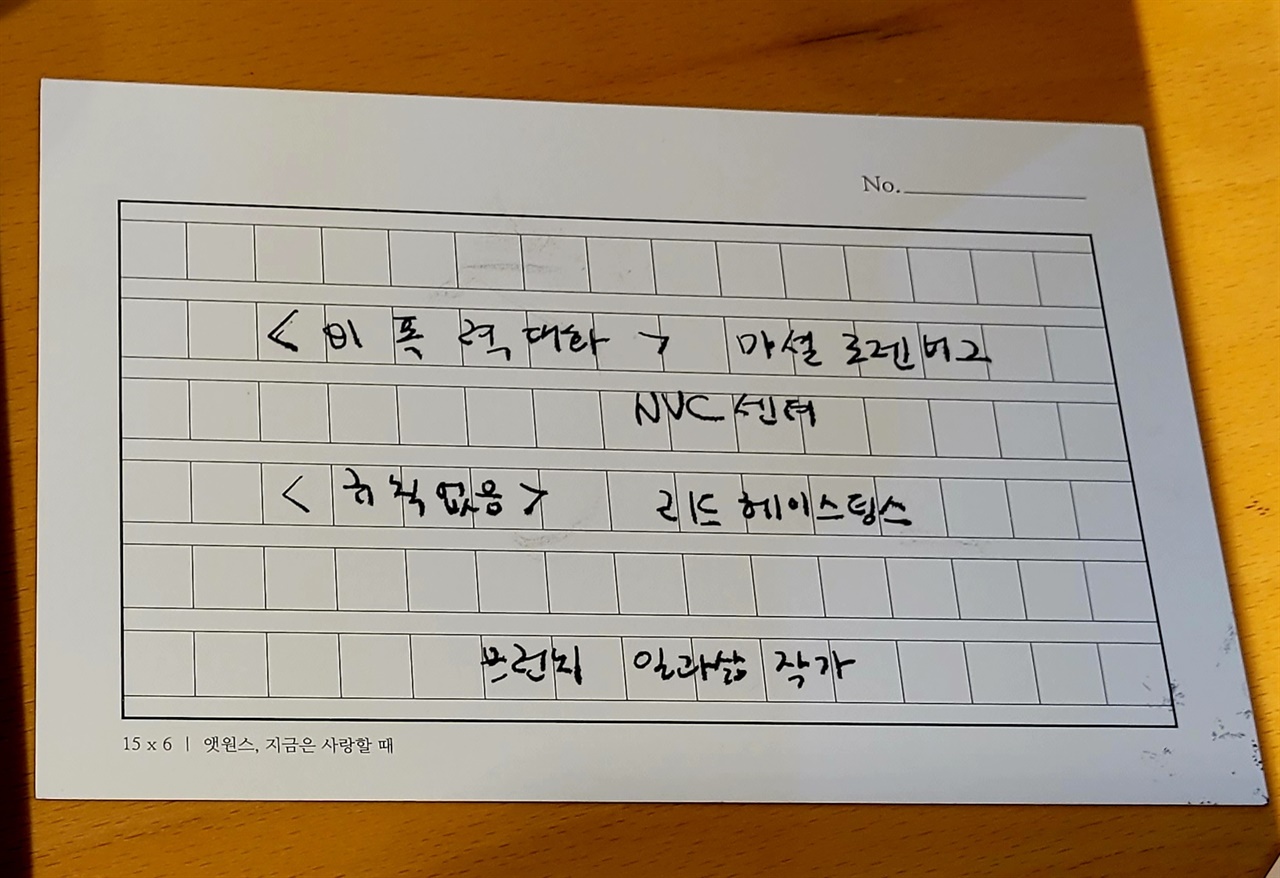 No.
<비폭력대화> 마셜 로젠버그
NVC 센터
<규칙없음> 리드 헤이스팅스
브런치 일과삶 작가
15 x 6 | 앳원스, 지금은 사랑할 때